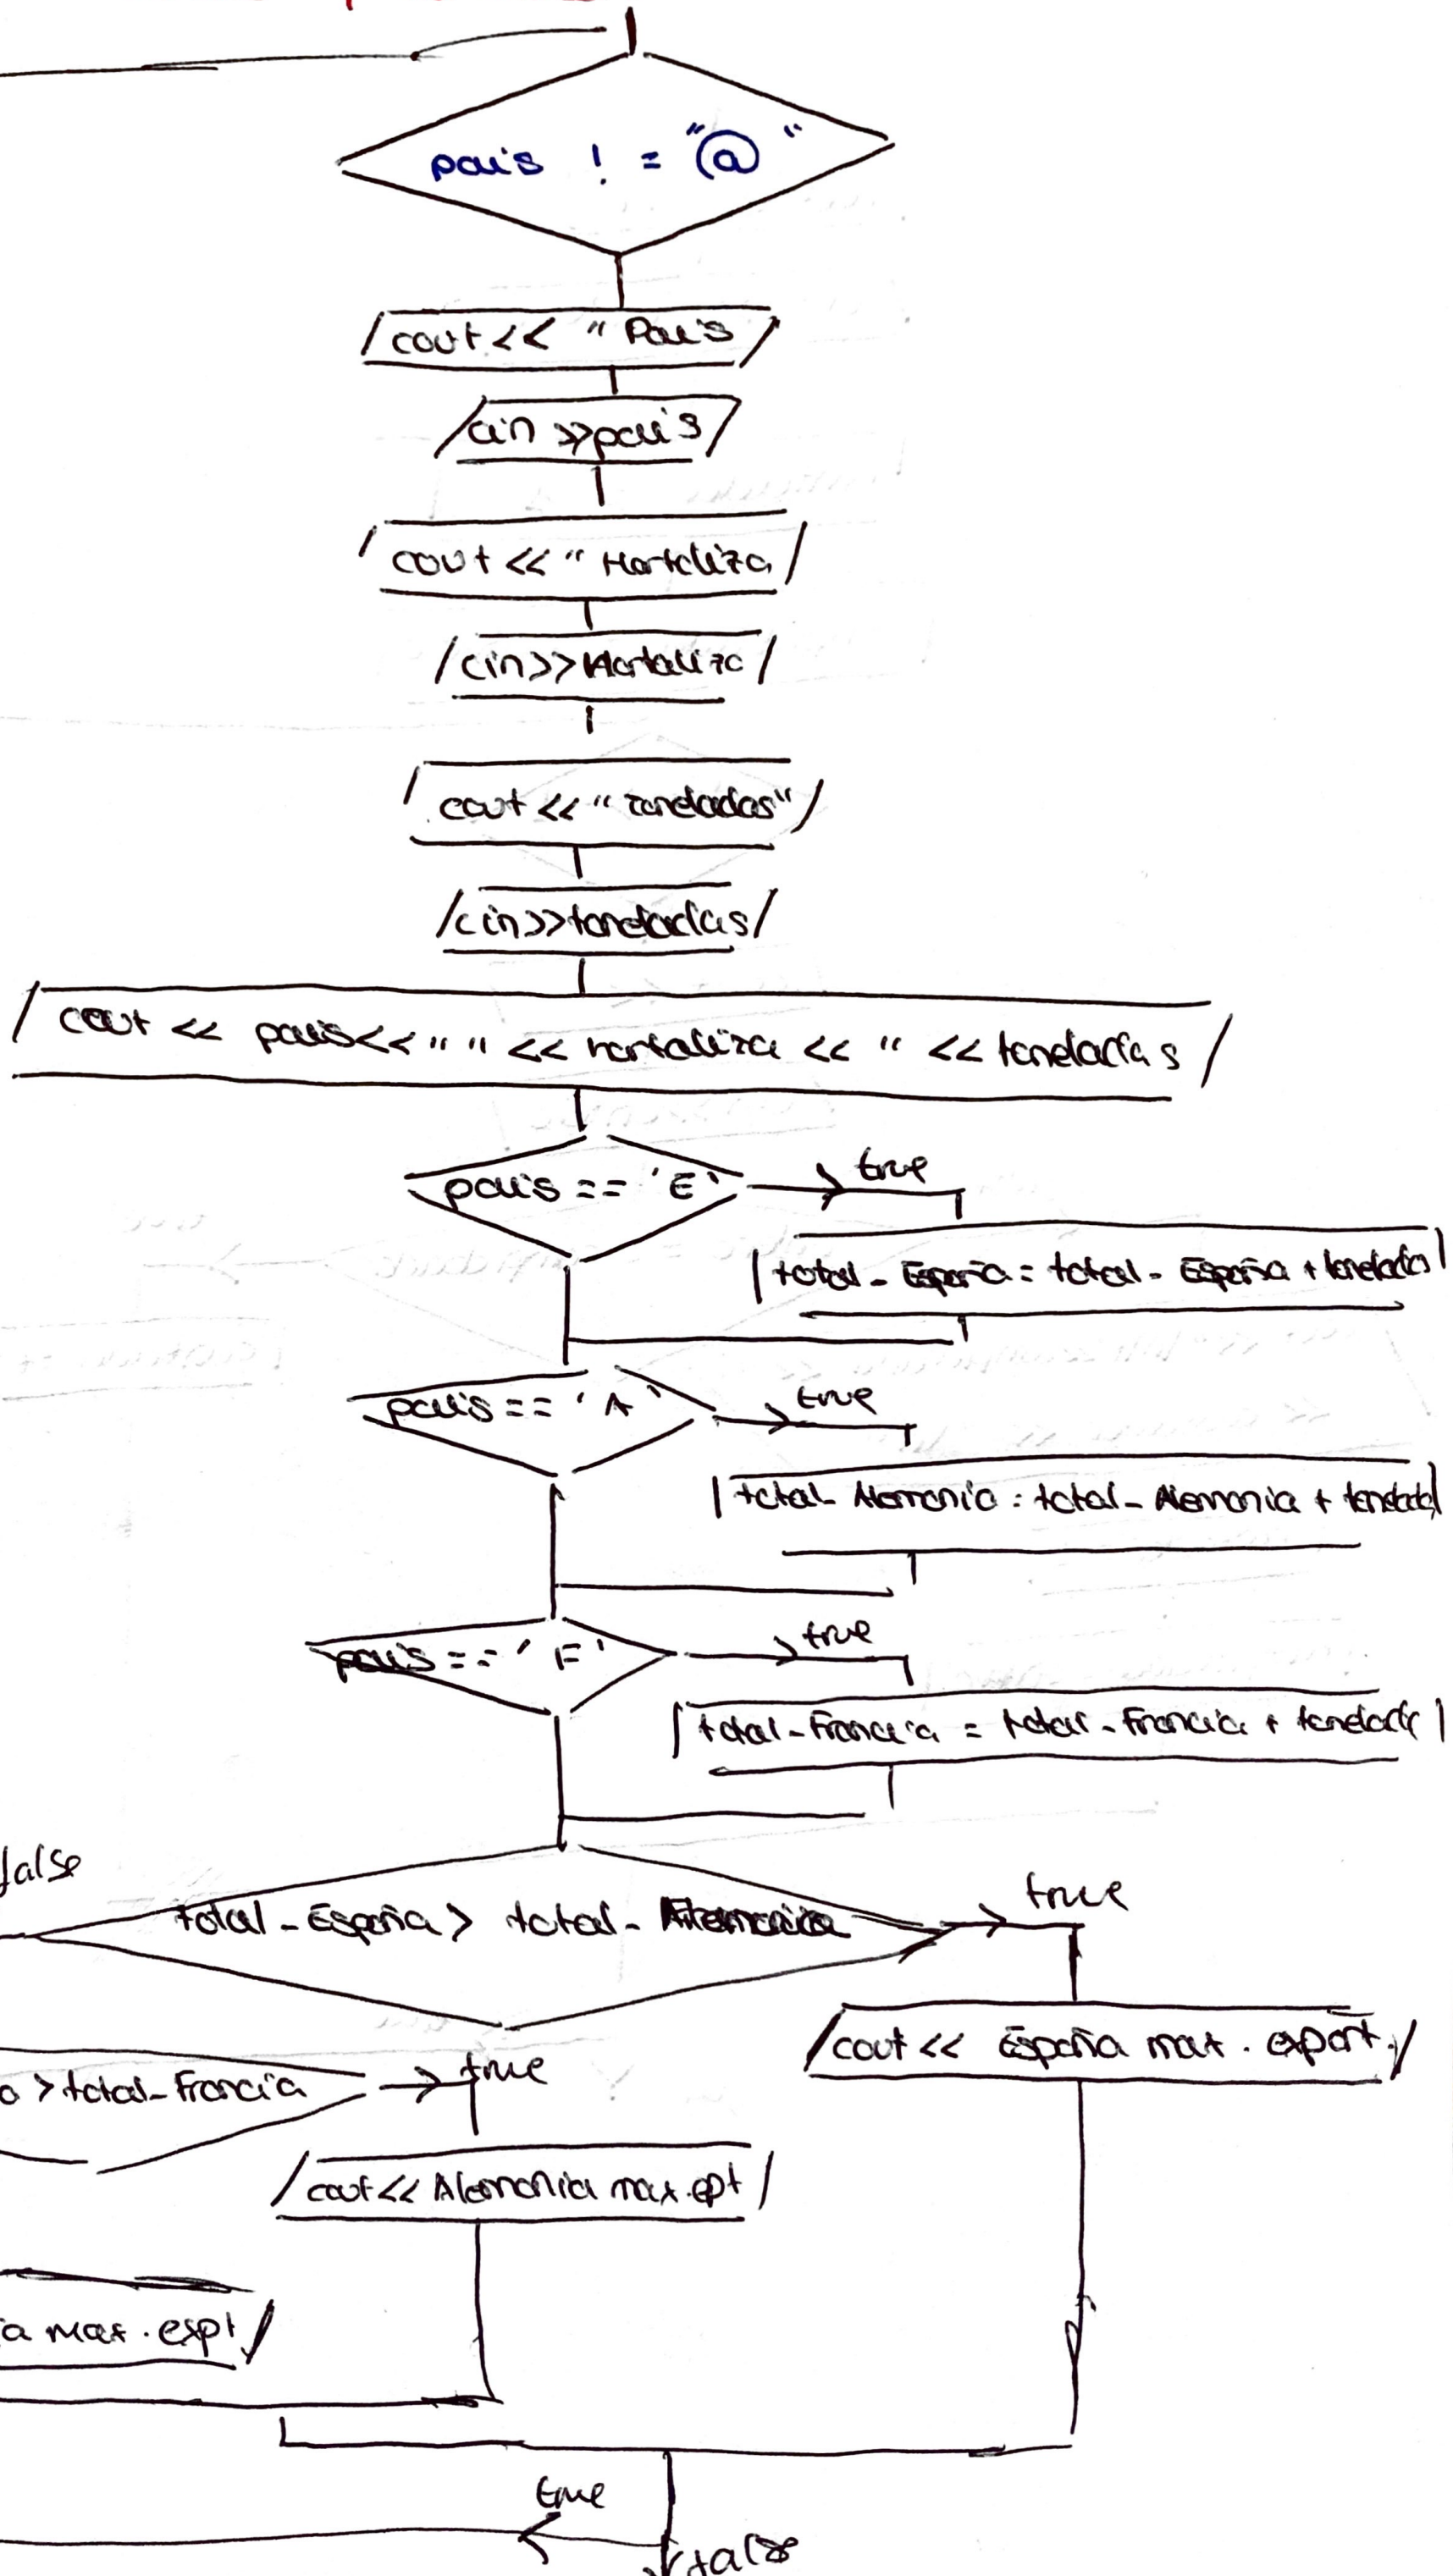 pais != "@"
cout << " Pais
cin >> pais
cout << " Hortaliza
cin >> Hortaliza
cout << " toneladas"
cin >> toneladas
cout << pais << " " << hortaliza << " << toneladas
pais == 'E'
true
total - España = total - España + toneladas
pais == 'A'
true
total - Alemania = total - Alemania + toneladas
pais == 'F'
true
total - Francia = total - Francia + tonelada
false
total - España > total - Alemania
true
cout << España max. export.
> total - Francia
true
cout << Alemania max. ept
a max. espt
true
false